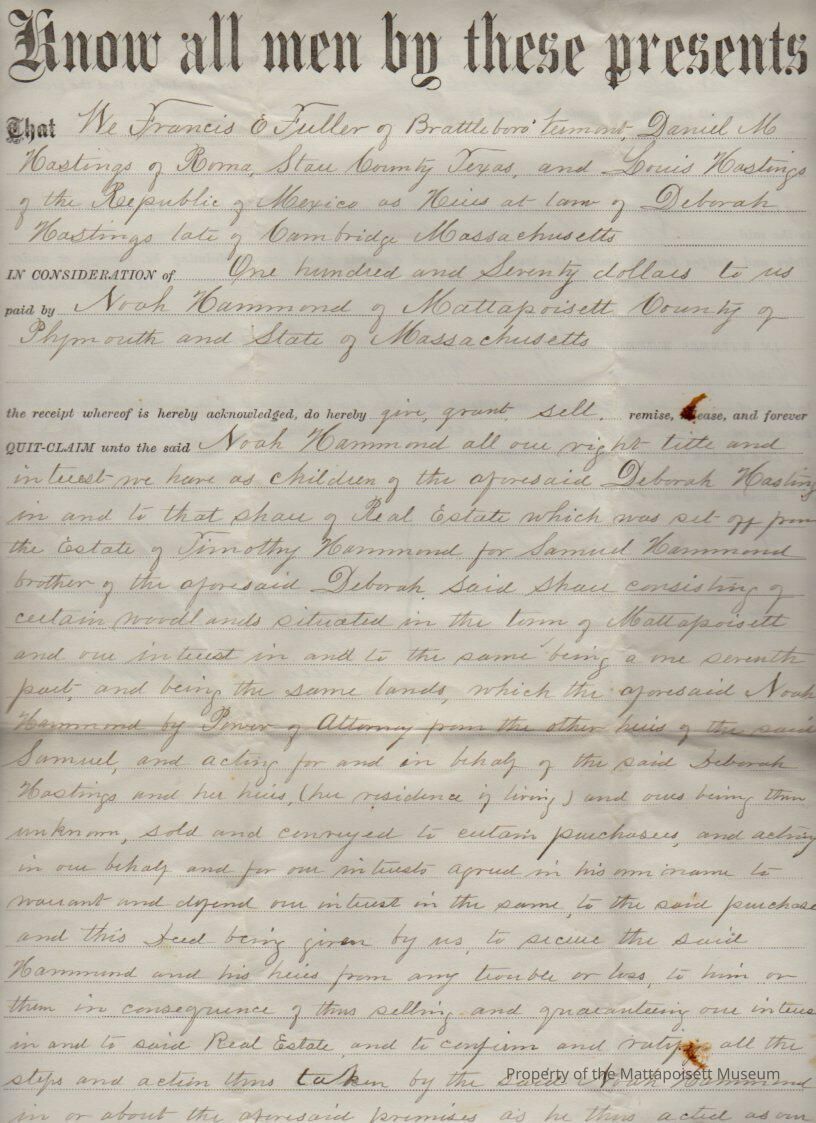 Know all men by these presents
That We Francis E Fuller of Brattleboro' Vermont, Daniel M
Hastings of Roma, Starr County Texas, and Louis Hastings
of the Republic of Mexico as Heirs at law of Deborah
Hastings late of Cambridge Massachusetts
IN CONSIDERATION of One hundred and Seventy dollars to us
paid by Noah Hammond of Mattapoisett County of
Plymouth and State of Massachusetts
the receipt whereof is hereby acknowledged, do hereby give, grant, sell, remise, release, and forever
QUIT-CLAIM unto the said Noah Hammond all our right title and
interest we have as children of the aforesaid Deborah Hasting
in and to that share of Real Estate which was set off from
the Estate of Timothy Hammond for Samuel Hammond
brother of the aforesaid Deborah, said share consisting of
certain woodlands situated in the town of Mattapoisett
and our interest in and to the same being a one seventh
part, and being the same lands, which the aforesaid Noah
Hammond by Power of Attorney from the other heirs of the said
Samuel, and acting for and in behalf of the said Deborah
Hastings and her heirs, (her residence if living) and ours being then
unknown, sold and conveyed to certain purchasers, and acting
in our behalf and for our interests agreed in his own name to
warrant and defend our interest in the same, to the said purchase
and this Deed being given by us, to secure the said
Hammond and his heirs from any trouble or loss, to him or
them in consequence of thus selling and guaranteeing our interes
in and to said Real Estate, and to confirm and ratify all the
steps and action thus taken by the said Noah Hammond
in or about the aforesaid premises as he thus acted as our
Property of the Mattapoisett Museum